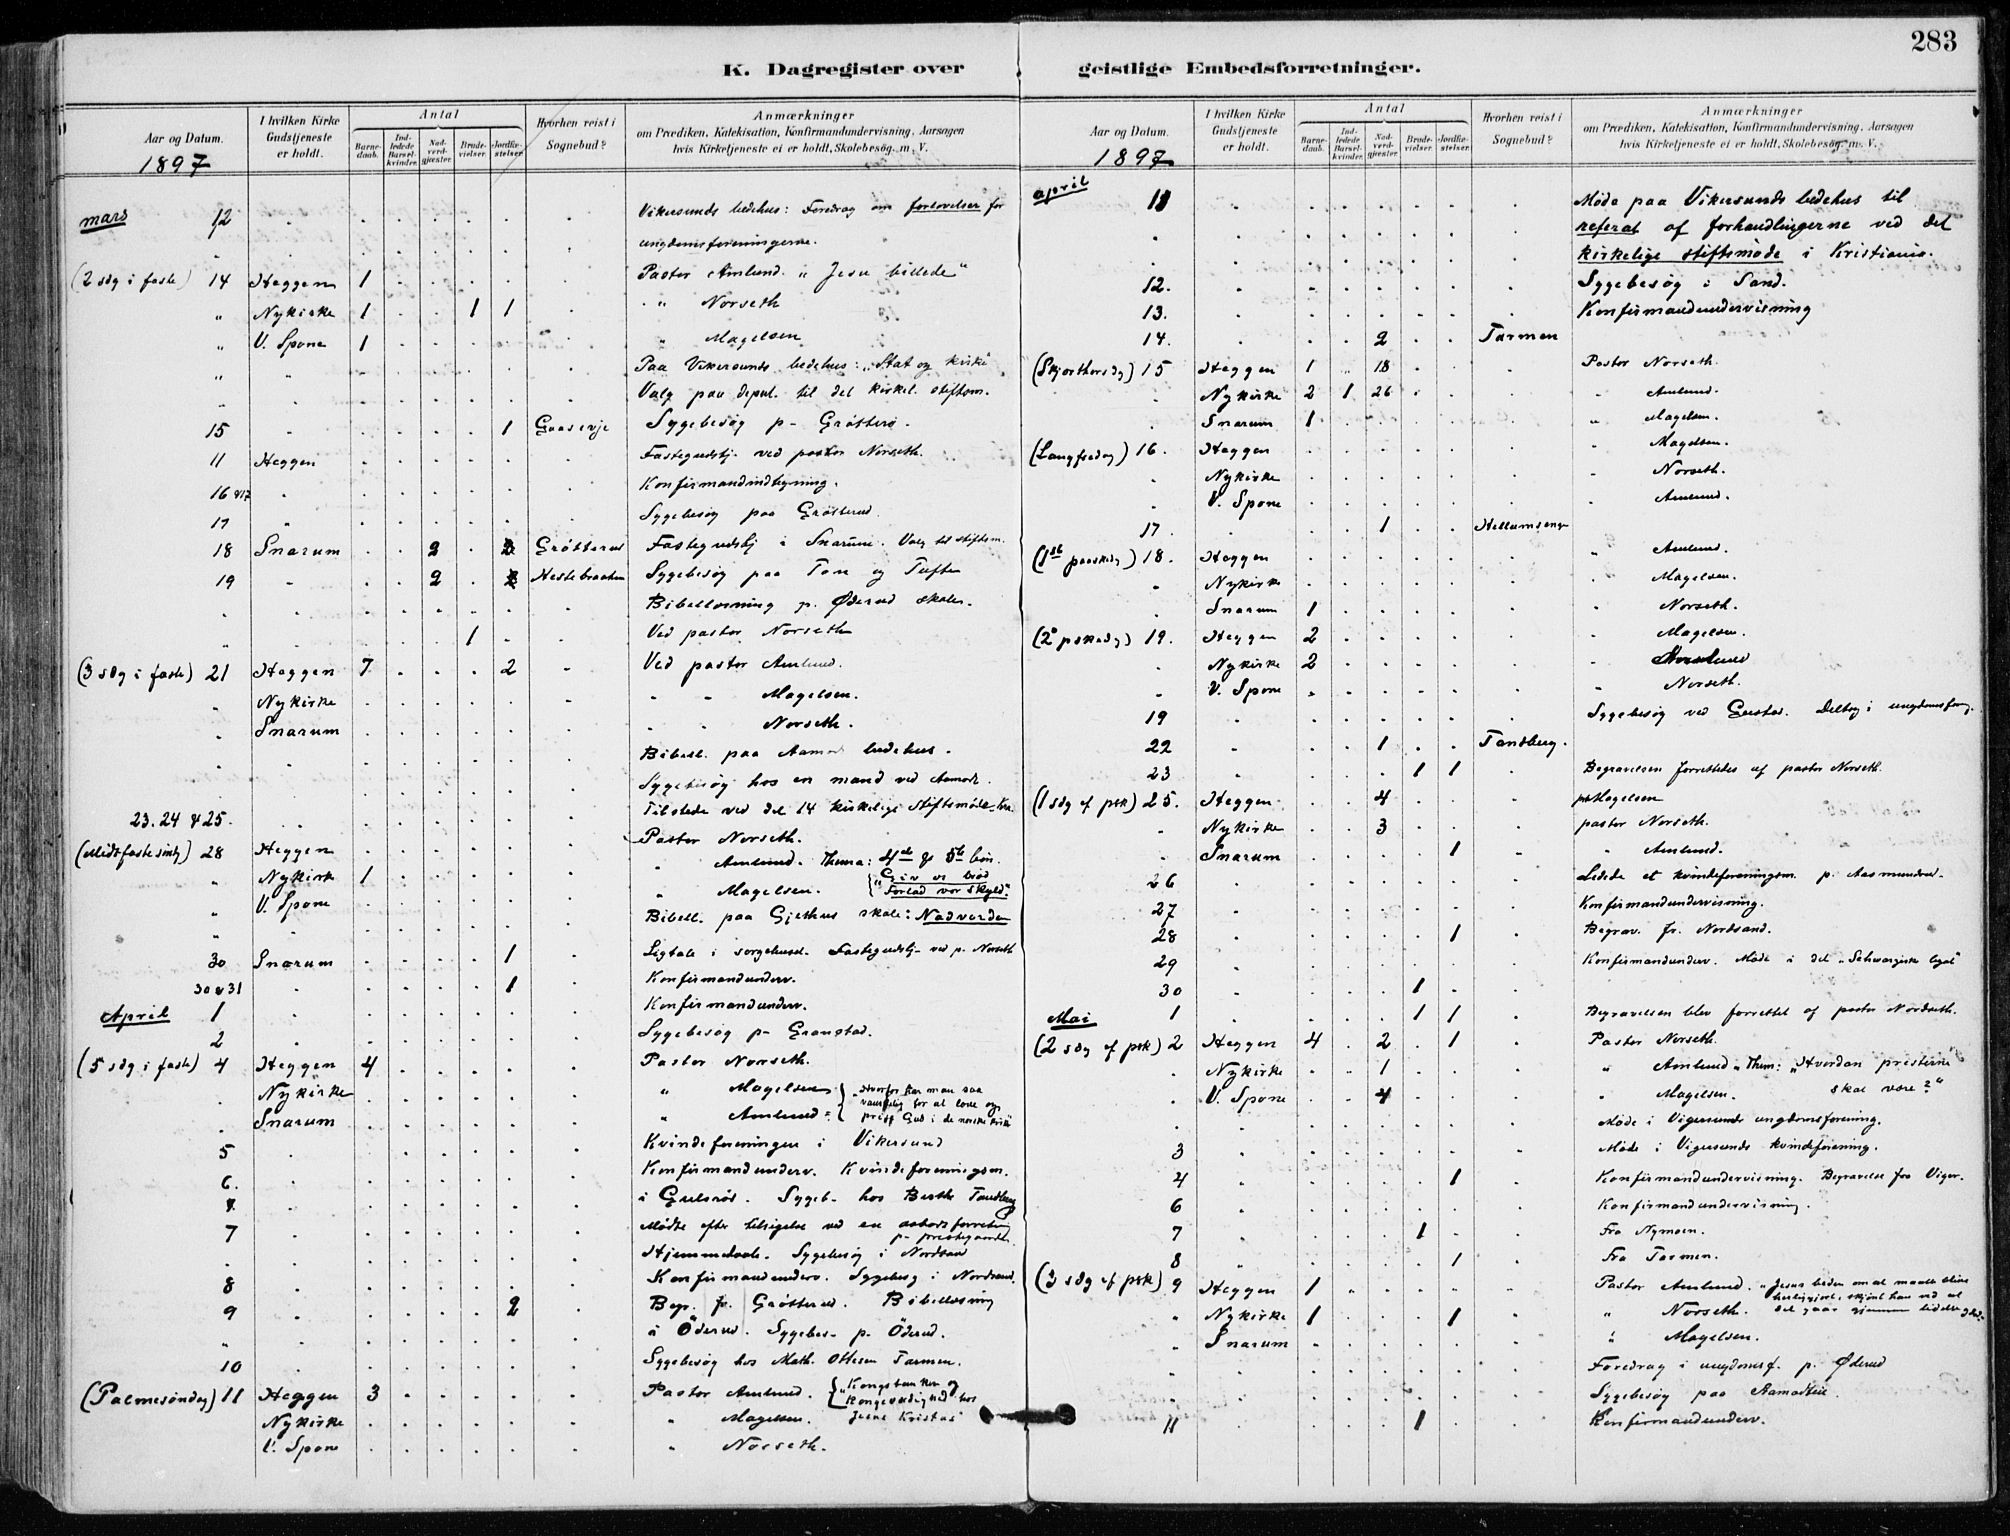 283
K. Dagregister over geistlige Embedsforretninger.
Aar og Datum. 1897
I hvilken Kirke Gudstjeneste er holdt.
Antal
Barnedaab. Indledede Barselkvinder. Nadverdgjæster. Brudevielser. Jordfæstelser.
Hvorhen reist i Sognebud?
Anmærkninger
om Prædiken, Katekisation, Konfirmandundervisning, Aarsagen
hvis Kirketjeneste ei er holdt, Skolebesøg. m. V.
mars 12 Vikersunds bedehus: Foredrag om forlovelser for
ungdomsforeningerne.
(2 sdg i faste) 14 Heggen 1 Pastor Amlund. "Jesu billede"
" Nykirke 1 1 1 " Norseth
" V. Spone 1 " Magelsen
" " Paa Vikersunds bedehus: "Stat og kirke"
Valg paa deput. til det kirkel. stiftsm.
15 1 Gaaserje Sygebesøg p- Grøtterø.
11 Heggen Fastegudstj. ved pastor Norseth.
16 & 17 Konfirmandindtegning.
17 " Sygebesøg paa Grøtterud.
18 Snarum 2 Grøtterud Fastegudstj i Snarum. Valg til stiftsm.
19 " 2 Hestebraaten Sygebesøg paa Ton og Tufte
Bibellæsning p. Øderud skole.
" 1 Ved pastor Norseth
(3 sdg i faste) 21 Heggen 7 2 Ved pastor Amlund.
" Nykirke " " Magelsen.
Snarum " Norseth.
Bibell. paa Aamot bedehus.
Sygebesøg hos en mand ved Aamot.
23. 24 & 25. Tilstede ved det 14 kirkelige Stiftsmøde Kra.
(Midtfastesdg) 28 Heggen Pastor Norseth.
" Nykirke 1 " Amlund. Thema: 4de og 5te bøn.
" V. Spone " Magelsen. { "Giv os brød
Forlad vor skyld"
" Bibell. paa Gjethus skole: Nadverden
30 Snarum 1 Ligtale i sorgehuset. Fastegudstj- ved p. Norseth
30 & 31 1 Konfirmandunderv.
April 1 Konfirmandunderv.
2 Sygebesøg p- Granstad.
(5 sdg i faste) 4 Heggen 4 Pastor Norseth.
Nykirke " Magelsen { "Hvorfor har man saa
Snarum " Amlund = { vanskelig for at love og
prise Gud i de norske kirk"
5 Kvindeforeningen i Vikersund
6. Konfirmandunderv. Kvindeforeningsm.
i Gulsrød. Sygeb. hos Berthe Tandberg
7 Mødte efter tilsigelse ved en aabodsforretning
p- prestegaarden
Hjemmedaab. Sygebesøg i Nordsand
8 Konfirmandunderv. Sygebesøg i Nordsand.
9 2 Begr. fr. Grøtterud. Bibellæsning
" i Öderud. Sygebes- p. Öderud.
10 Sygebesøg hos Math. Ottesen Tarmen.
(Palmesøndag) 11 Heggen 3 Pastor Amlund. { "Kongetanken og
Nykirke " Magelsen. Kongeværdighed hos
Jesus Kristus"
V. Spone " Norseth.
Aar og Datum. 1897
I hvilken Kirke Gudstjeneste er holdt.
Antal
Barnedaab. Indledede Barselkvinder. Nadverdgjæster. Brudevielser. Jordfæstelser.
Hvorhen reist i Sognebud?
Anmærkninger
om Prædiken, Katekisation, Konfirmandundervisning, Aarsagen
hvis Kirketjeneste ei er holdt, Skolebesøg. m. V.
april 11 Møde paa Vikersunds bedehus til
referat af forhandlingerne ved det
kirkelige stiftsmøde i Kristiania.
12. Sygebesøg i Sand.
13. Konfirmandundervisning
14. 2 Tarmen
(Skjærthorsdg) 15 Heggen 1 18 Pastor Norseth.
Nykirke 2 1 26 " Amlund.
Snarum 1 " Magelsen.
(Langfredag) 16. Heggen " Magelsen.
Nykirke " Norseth.
V. Spone " Amlund.
17. 1 Hellumseng
(1ste paaskedg) 18. Heggen " Amlund.
" Nykirke " Magelsen.
Snarum 1 " Norseth.
(2den pskedg) 19. Heggen 2 " Magelsen.
Nykirke 2
V. Spone " Norseth.
19 Sygebesøg ved Gustad. Deltog i ungdomsforg.
22 1 Tandberg.
23 1 1 Begravelsen forrettedes af pastor Norseth.
(1 sdg ef psk) 25. Heggen 4 p. Magelsen
Nykirke 3 pastor Norseth.
Snarum 1 " Amlund.
26 Ledede et kvindeforeningsm. p. Aasmundrud.
27 Konfirmandundervisning.
28 1 Begrav. fr. Nordsand.
29 Konfirmandunderv. Møde i det "Schwarziske legat"
30 1
Mai 1 1 1 Begravelsen blev forrettet af pastor Nordseth.
(2 sdg ef psk) 2 Heggen 4 2 1 Pastor Norseth.
Nykirke 1 " Amlund " Them: "Hvordan presterne
V. Spone 4 " Magelsen. skal være?"
Møde i Vigersunds ungdomsforening.
3 Møde i Vigersunds kvindeforening.
4 1 Konfirmandundervisning. Begravelse fra Viger.
6 Konfirmandundervisning.
7 1 Fra Nymoen.
8 1 Fra Tarmen.
(3 sdg ef psk) 9 Heggen 1 Pastor Amlund. "Jesus beden om at maatte blive
herliggjort, skjønt han ved at
" Nykirke 1 1 " Norseth. det gaar gjennem lidelse
" Snarum " Magelsen.
Foredrag i ungdomsf. p. Øderud
Sygebesøg paa Aamodteie.
11 1 Konfirmandunderv.